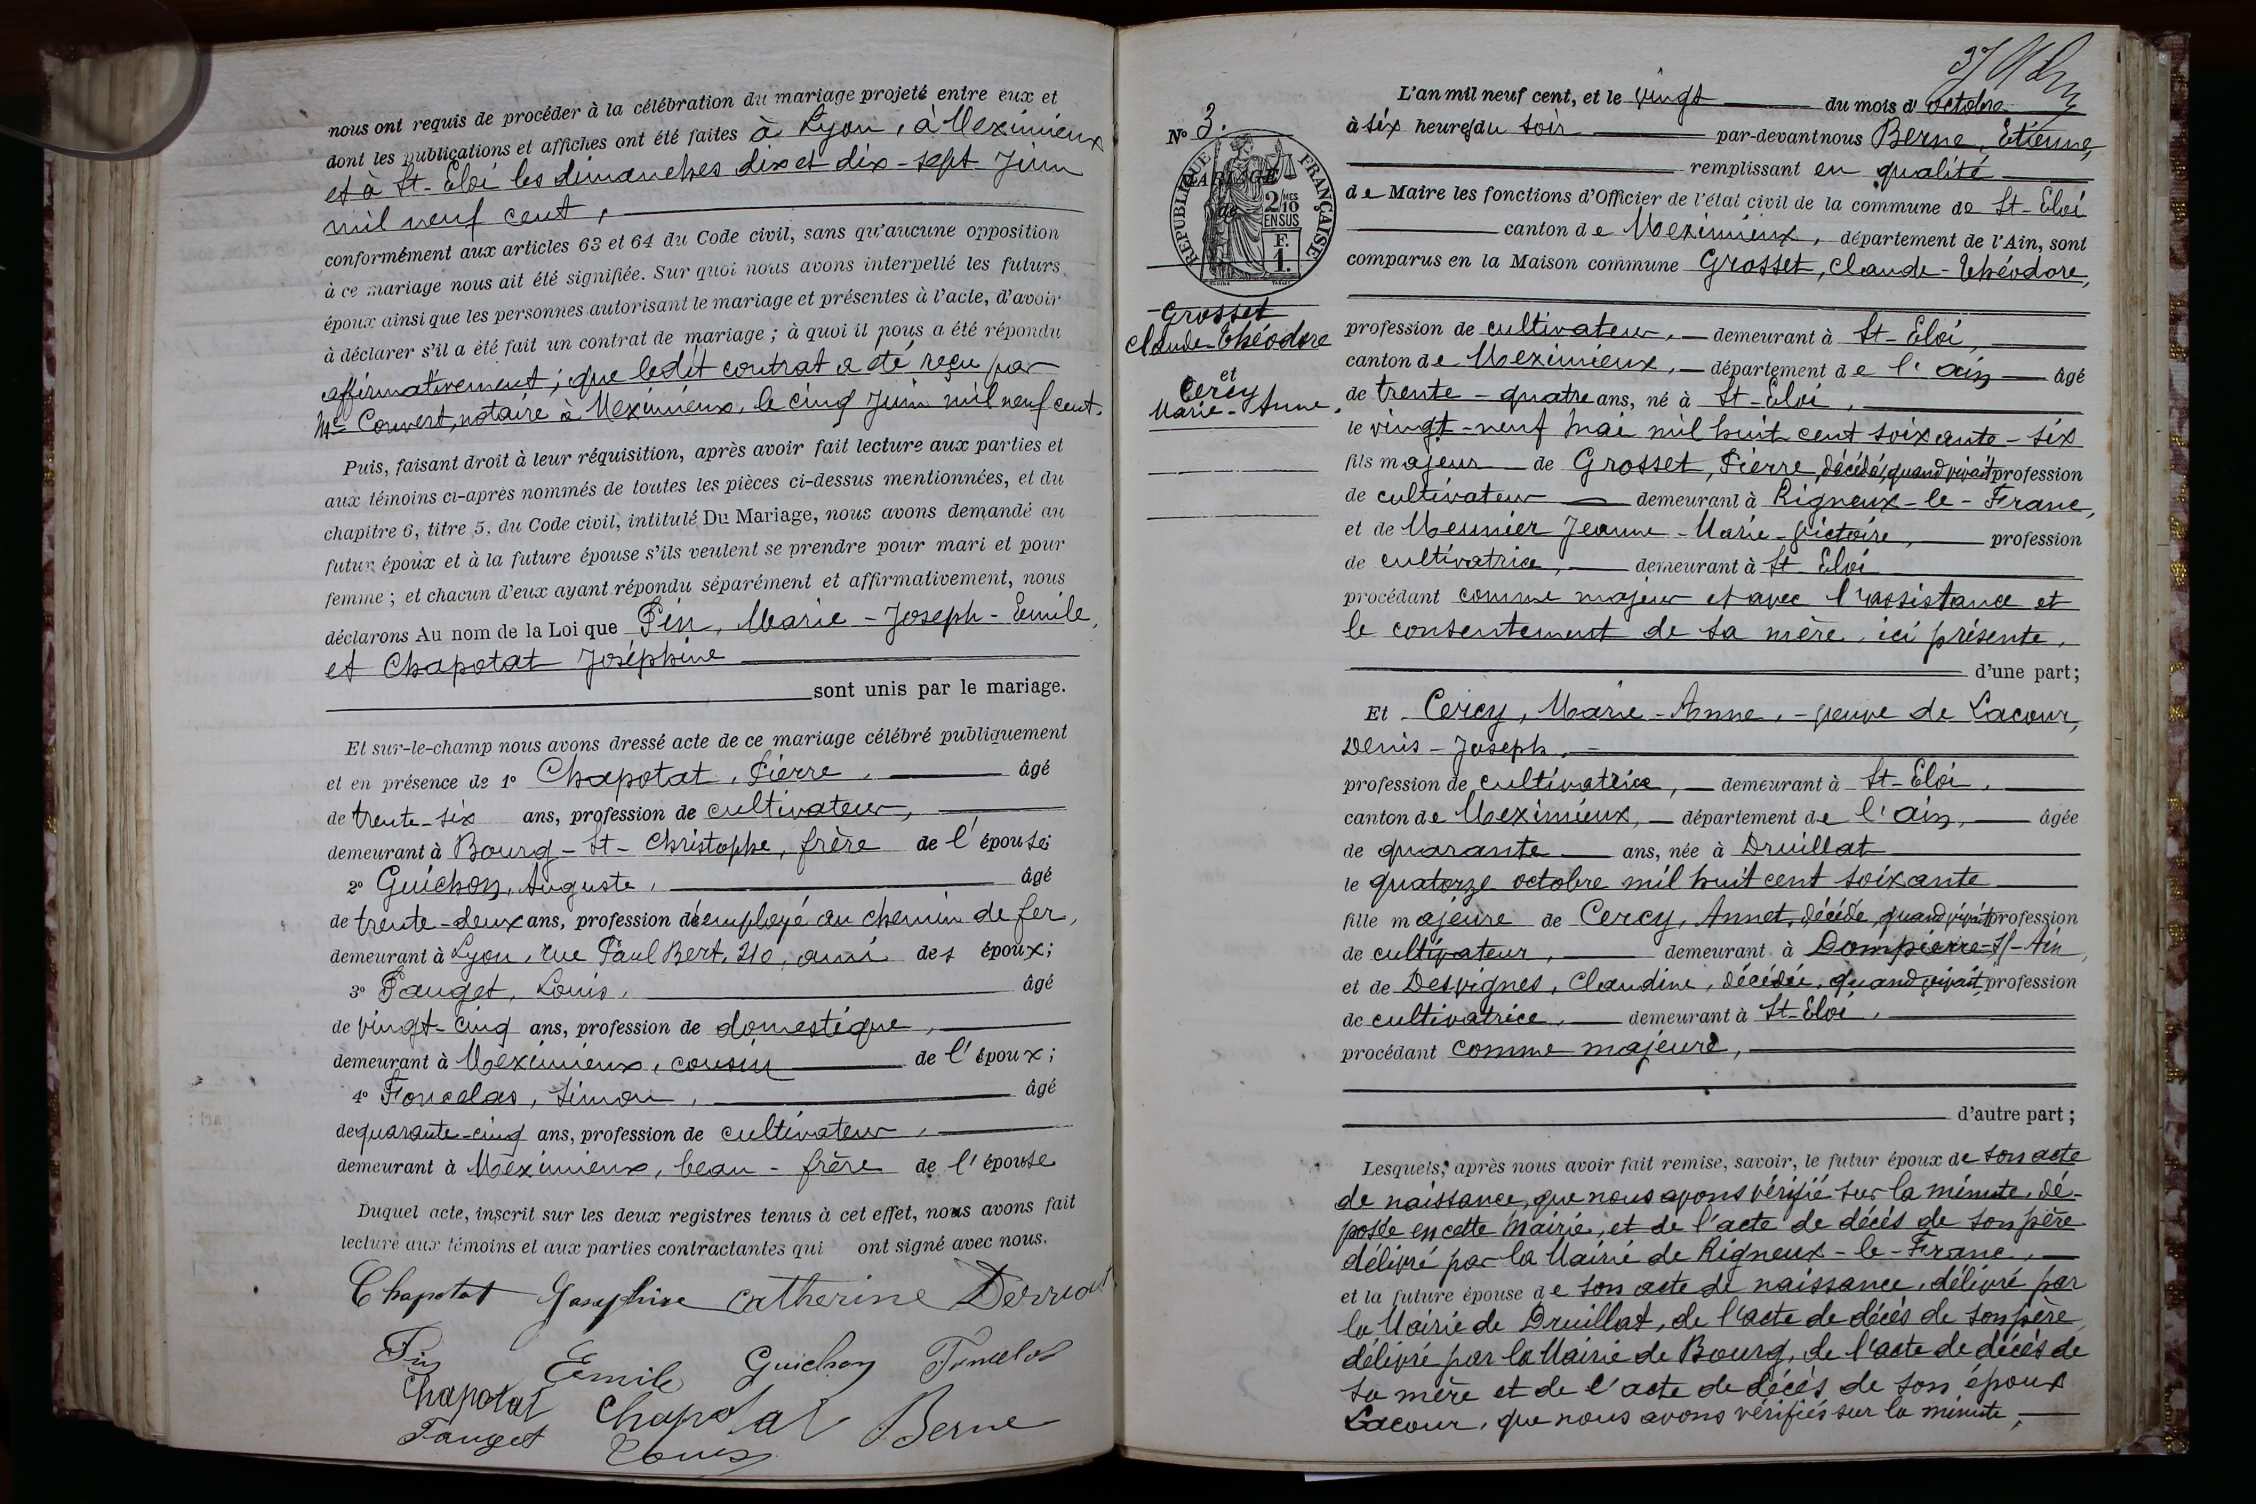 nous ont requis de procéder à la célébration du mariage projeté entre eux et
dont les publications et affiches ont été faites à Lyon, à Meximieux
et à St-Eloi les dimanches dix et dix-sept Juin
mil neuf cent,
conformément aux articles 63 et 64 du Code civil, sans qu'aucune opposition
à ce mariage nous ait été signifiée. Sur quoi nous avons interpellé les futurs
époux ainsi que les personnes autorisant le mariage et présentes à l'acte, d'avoir
à déclarer s'il a été fait un contrat de mariage ; à quoi il nous a été répondu
affirmativement ; que ledit contrat a été reçu par
Me Couvert, notaire à Meximieux, le cinq Juin mil neuf cent.
Puis, faisant droit à leur réquisition, après avoir fait lecture aux parties et
aux témoins ci-après nommés de toutes les pièces ci-dessus mentionnées, et du
chapitre 6, titre 5, du Code civil, intitulé Du Mariage, nous avons demandé au
futur époux et à la future épouse s'ils veulent se prendre pour mari et pour
femme ; et chacun d'eux ayant répondu séparément et affirmativement, nous
déclarons Au nom de la Loi que Pin, Marie-Joseph-Emile,
et Chapotat Joséphine
sont unis par le mariage.
Et sur-le-champ nous avons dressé acte de ce mariage célébré publiquement
et en présence de 1° Chapotat, Pierre, âgé
de trente-six ans, profession de cultivateur,
demeurant à Bourg-St-Christophe, frère de l'épouse;
2° Guichon, Auguste, âgé
de trente-deux ans, profession d'employé au chemin de fer,
demeurant à Lyon, rue Paul Bert, 210, ami des époux;
3° Pauget, Louis, âgé
de vingt-cinq ans, profession de domestique,
demeurant à Meximieux, cousin de l'époux;
4° Foncelas, Simon, âgé
de quarante-cinq ans, profession de cultivateur,
demeurant à Meximieux, beau-frère de l'épouse
Duquel acte, inscrit sur les deux registres tenus à cet effet, nous avons fait
lecture aux témoins et aux parties contractantes qui ont signé avec nous.
Chapotat Joséphine Catherine
Pin Emile Guichon
Chapotat Chapotat Berne
Pauget Louis
37
L'an mil neuf cent, et le vingt du mois d'octobre
N° 3.
à six heures du soir par-devant nous Berne, Etienne,
remplissant en qualité
de Maire les fonctions d'Officier de l'état civil de la commune de St-Eloi
canton de Meximieux, département de l'Ain, sont
comparus en la Maison commune Grosset, Claude-Théodore,
RÉPUBLIQUE FRANÇAISE
MARIAGE
de
2/10 MES
EN SUS
F.
1.
Grosset
Claude-Théodore
et
Cercy
Marie-Anne,
profession de cultivateur, demeurant à St-Eloi,
canton de Meximieux, département de l'Ain âgé
de trente-quatre ans, né à St-Eloi,
le vingt-neuf Mai mil huit cent soixante-six
fils majeur de Grosset, Pierre, décédé, quand vivait profession
de cultivateur demeurant à Rigneux-le-Franc,
et de Meunier Jeanne-Marie-Victoire, profession
de cultivatrice, demeurant à St-Eloi
procédant comme majeur et avec l'assistance et
le consentement de sa mère, ici présente,
d'une part;
Et Cercy, Marie-Anne, veuve de Lacour,
Denis-Joseph,
profession de cultivatrice, demeurant à St-Eloi,
canton de Meximieux, département de l'Ain, âgée
de quarante ans, née à Druillat
le quatorze octobre mil huit cent soixante
fille majeure de Cercy, Annet, décédé, quand vivait profession
de cultivateur, demeurant à Dompierre-s/-Ain,
et de Desvignes, Claudine, décédée, quand vivait profession
de cultivatrice, demeurant à St-Eloi,
procédant comme majeure,
d'autre part;
Lesquels, après nous avoir fait remise, savoir, le futur époux de son acte
de naissance, que nous avons vérifié sur la minute, dé-
posée en cette Mairie, et de l'acte de décès de son père
délivré par la Mairie de Rigneux-le-Franc,
et la future épouse de son acte de naissance, délivré par
la Mairie de Druillat, de l'acte de décès de son père
délivré par la Mairie de Bourg, de l'acte de décès de
sa mère et de l'acte de décès de son époux
Lacour, que nous avons vérifiés sur la minute,